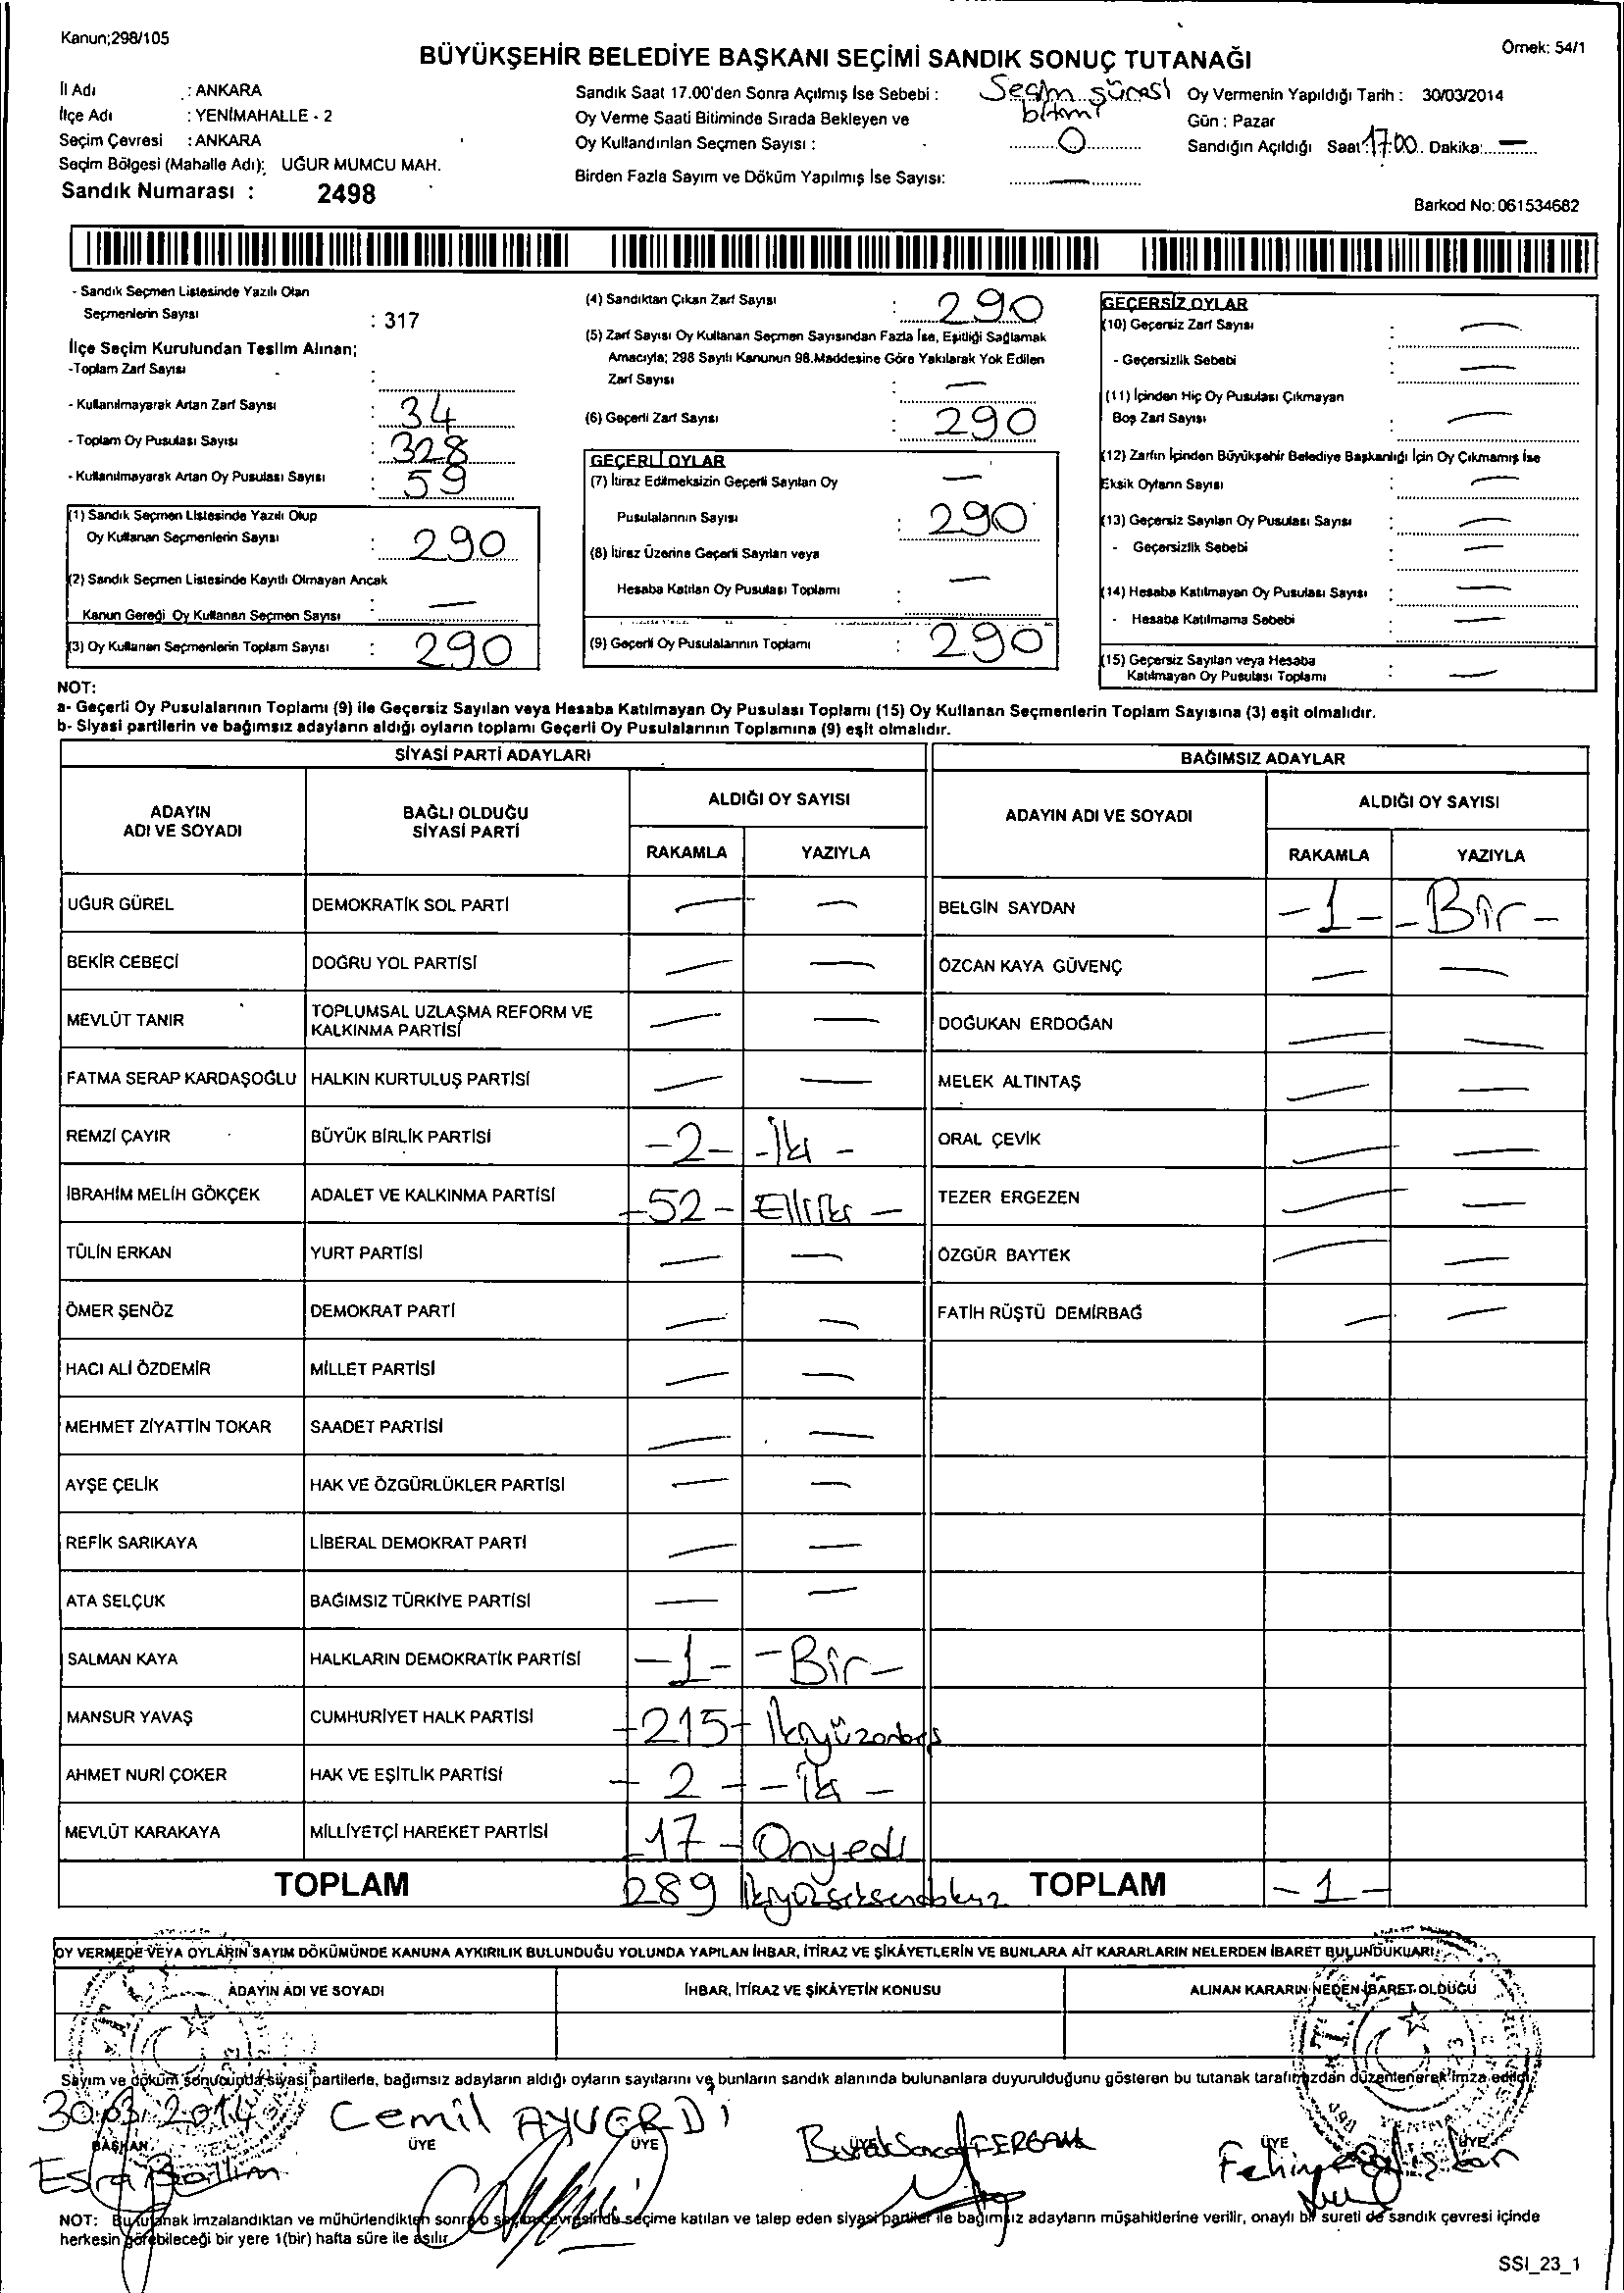 Kanun;298/105
Örnek: 54/1
BÜYÜKŞEHİR BELEDİYE BAŞKANI SEÇİMİ SANDIK SONUÇ TUTANAĞI
İl Adı : ANKARA
İlçe Adı : YENİMAHALLE - 2
Seçim Çevresi : ANKARA
Seçim Bölgesi (Mahalle Adı): UĞUR MUMCU MAH.
Sandık Numarası : 2498
Sandık Saat 17.00'den Sonra Açılmış İse Sebebi : Seçim süresi bitimi
Oy Verme Saati Bitiminde Sırada Bekleyen ve
Oy Kullandırılan Seçmen Sayısı : 0
Birden Fazla Sayım ve Döküm Yapılmış İse Sayısı: —
Oy Vermenin Yapıldığı Tarih : 30/03/2014
Gün : Pazar
Sandığın Açıldığı Saat 17:00 Dakika: —
Barkod No: 061534682
- Sandık Seçmen Listesinde Yazılı Olan
Seçmenlerin Sayısı : 317
İlçe Seçim Kurulundan Teslim Alınan;
-Toplam Zarf Sayısı :
- Kullanılmayarak Artan Zarf Sayısı : 34
- Toplam Oy Pusulası Sayısı : 328
- Kullanılmayarak Artan Oy Pusulası Sayısı : 59
(1) Sandık Seçmen Listesinde Yazılı Olup
Oy Kullanan Seçmenlerin Sayısı : 290
(2) Sandık Seçmen Listesinde Kayıtlı Olmayan Ancak
Kanun Gereği Oy Kullanan Seçmen Sayısı : —
(3) Oy Kullanan Seçmenlerin Toplam Sayısı : 290
(4) Sandıktan Çıkan Zarf Sayısı : 290
(5) Zarf Sayısı Oy Kullanan Seçmen Sayısından Fazla İse, Eşitliği Sağlamak
Amacıyla; 298 Sayılı Kanunun 98.Maddesine Göre Yakılarak Yok Edilen
Zarf Sayısı : —
(6) Geçerli Zarf Sayısı : 290
GEÇERLİ OYLAR
(7) İtiraz Edilmeksizin Geçerli Sayılan Oy —
Pusulalarının Sayısı : 290
(8) İtiraz Üzerine Geçerli Sayılan veya
Hesaba Katılan Oy Pusulası Toplamı : —
(9) Geçerli Oy Pusulalarının Toplamı : 290
GEÇERSİZ OYLAR
(10) Geçersiz Zarf Sayısı : —
- Geçersizlik Sebebi : —
(11) İçinden Hiç Oy Pusulası Çıkmayan
Boş Zarf Sayısı : —
(12) Zarfın İçinden Büyükşehir Belediye Başkanlığı İçin Oy Çıkmamış İse
Eksik Oyların Sayısı : —
(13) Geçersiz Sayılan Oy Pusulası Sayısı : —
- Geçersizlik Sebebi : —
(14) Hesaba Katılmayan Oy Pusulası Sayısı : —
- Hesaba Katılmama Sebebi : —
(15) Geçersiz Sayılan veya Hesaba
Katılmayan Oy Pusulası Toplamı : —
NOT:
a- Geçerli Oy Pusulalarının Toplamı (9) ile Geçersiz Sayılan veya Hesaba Katılmayan Oy Pusulası Toplamı (15) Oy Kullanan Seçmenlerin Toplam Sayısına (3) eşit olmalıdır.
b- Siyasi partilerin ve bağımsız adayların aldığı oyların toplamı Geçerli Oy Pusulalarının Toplamına (9) eşit olmalıdır.
SİYASİ PARTİ ADAYLARI
ADAYIN ADI VE SOYADI
BAĞLI OLDUĞU SİYASİ PARTİ
ALDIĞI OY SAYISI
RAKAMLA YAZIYLA
UĞUR GÜREL DEMOKRATİK SOL PARTİ — —
BEKİR CEBECİ DOĞRU YOL PARTİSİ — —
MEVLÜT TANIR TOPLUMSAL UZLAŞMA REFORM VE KALKINMA PARTİSİ — —
FATMA SERAP KARDAŞOĞLU HALKIN KURTULUŞ PARTİSİ — —
REMZİ ÇAYIR BÜYÜK BİRLİK PARTİSİ -2- -İki -
İBRAHİM MELİH GÖKÇEK ADALET VE KALKINMA PARTİSİ -52- Elliiki -
TÜLİN ERKAN YURT PARTİSİ — —
ÖMER ŞENÖZ DEMOKRAT PARTİ — —
HACI ALİ ÖZDEMİR MİLLET PARTİSİ — —
MEHMET ZİYATTİN TOKAR SAADET PARTİSİ — —
AYŞE ÇELİK HAK VE ÖZGÜRLÜKLER PARTİSİ — —
REFİK SARIKAYA LİBERAL DEMOKRAT PARTİ — —
ATA SELÇUK BAĞIMSIZ TÜRKİYE PARTİSİ — —
SALMAN KAYA HALKLARIN DEMOKRATİK PARTİSİ -1- -Bir-
MANSUR YAVAŞ CUMHURİYET HALK PARTİSİ -215- İkiyüzonbeş
AHMET NURİ ÇOKER HAK VE EŞİTLİK PARTİSİ - 2 - - iki -
MEVLÜT KARAKAYA MİLLİYETÇİ HAREKET PARTİSİ -17- Onyedi
TOPLAM 289 ikiyüzseksendokuz
BAĞIMSIZ ADAYLAR
ADAYIN ADI VE SOYADI
ALDIĞI OY SAYISI
RAKAMLA YAZIYLA
BELGİN SAYDAN -1- -Bir-
ÖZCAN KAYA GÜVENÇ — —
DOĞUKAN ERDOĞAN — —
MELEK ALTINTAŞ — —
ORAL ÇEVİK — —
TEZER ERGEZEN — —
ÖZGÜR BAYTEK — —
FATİH RÜŞTÜ DEMİRBAĞ — —
TOPLAM -1-
OY VERMEDE VEYA OYLARIN SAYIM DÖKÜMÜNDE KANUNA AYKIRILIK BULUNDUĞU YOLUNDA YAPILAN İHBAR, İTİRAZ VE ŞİKÂYETLERİN VE BUNLARA AİT KARARLARIN NELERDEN İBARET BULUNDUKLARI
ADAYIN ADI VE SOYADI
İHBAR, İTİRAZ VE ŞİKÂYETİN KONUSU
ALINAN KARARIN NEDEN İBARET OLDUĞU
Sayım ve döküm sonucunda siyasi partilerle, bağımsız adayların aldığı oyların sayılarını ve bunların sandık alanında bulunanlara duyurulduğunu gösteren bu tutanak tarafımızdan düzenlenerek imza edildi.
30.03.2014 Cemil AYVERDİ
BAŞKAN ÜYE ÜYE ÜYE ÜYE ÜYE
Esra
NOT: Bu tutanak imzalandıktan ve mühürlendikten sonra o seçim çevresinde seçime katılan ve talep eden siyasi partiler ile bağımsız adayların müşahitlerine verilir, onaylı bir sureti de sandık çevresi içinde
herkesin görebileceği bir yere 1(bir) hafta süre ile asılır.
SSI_23_1